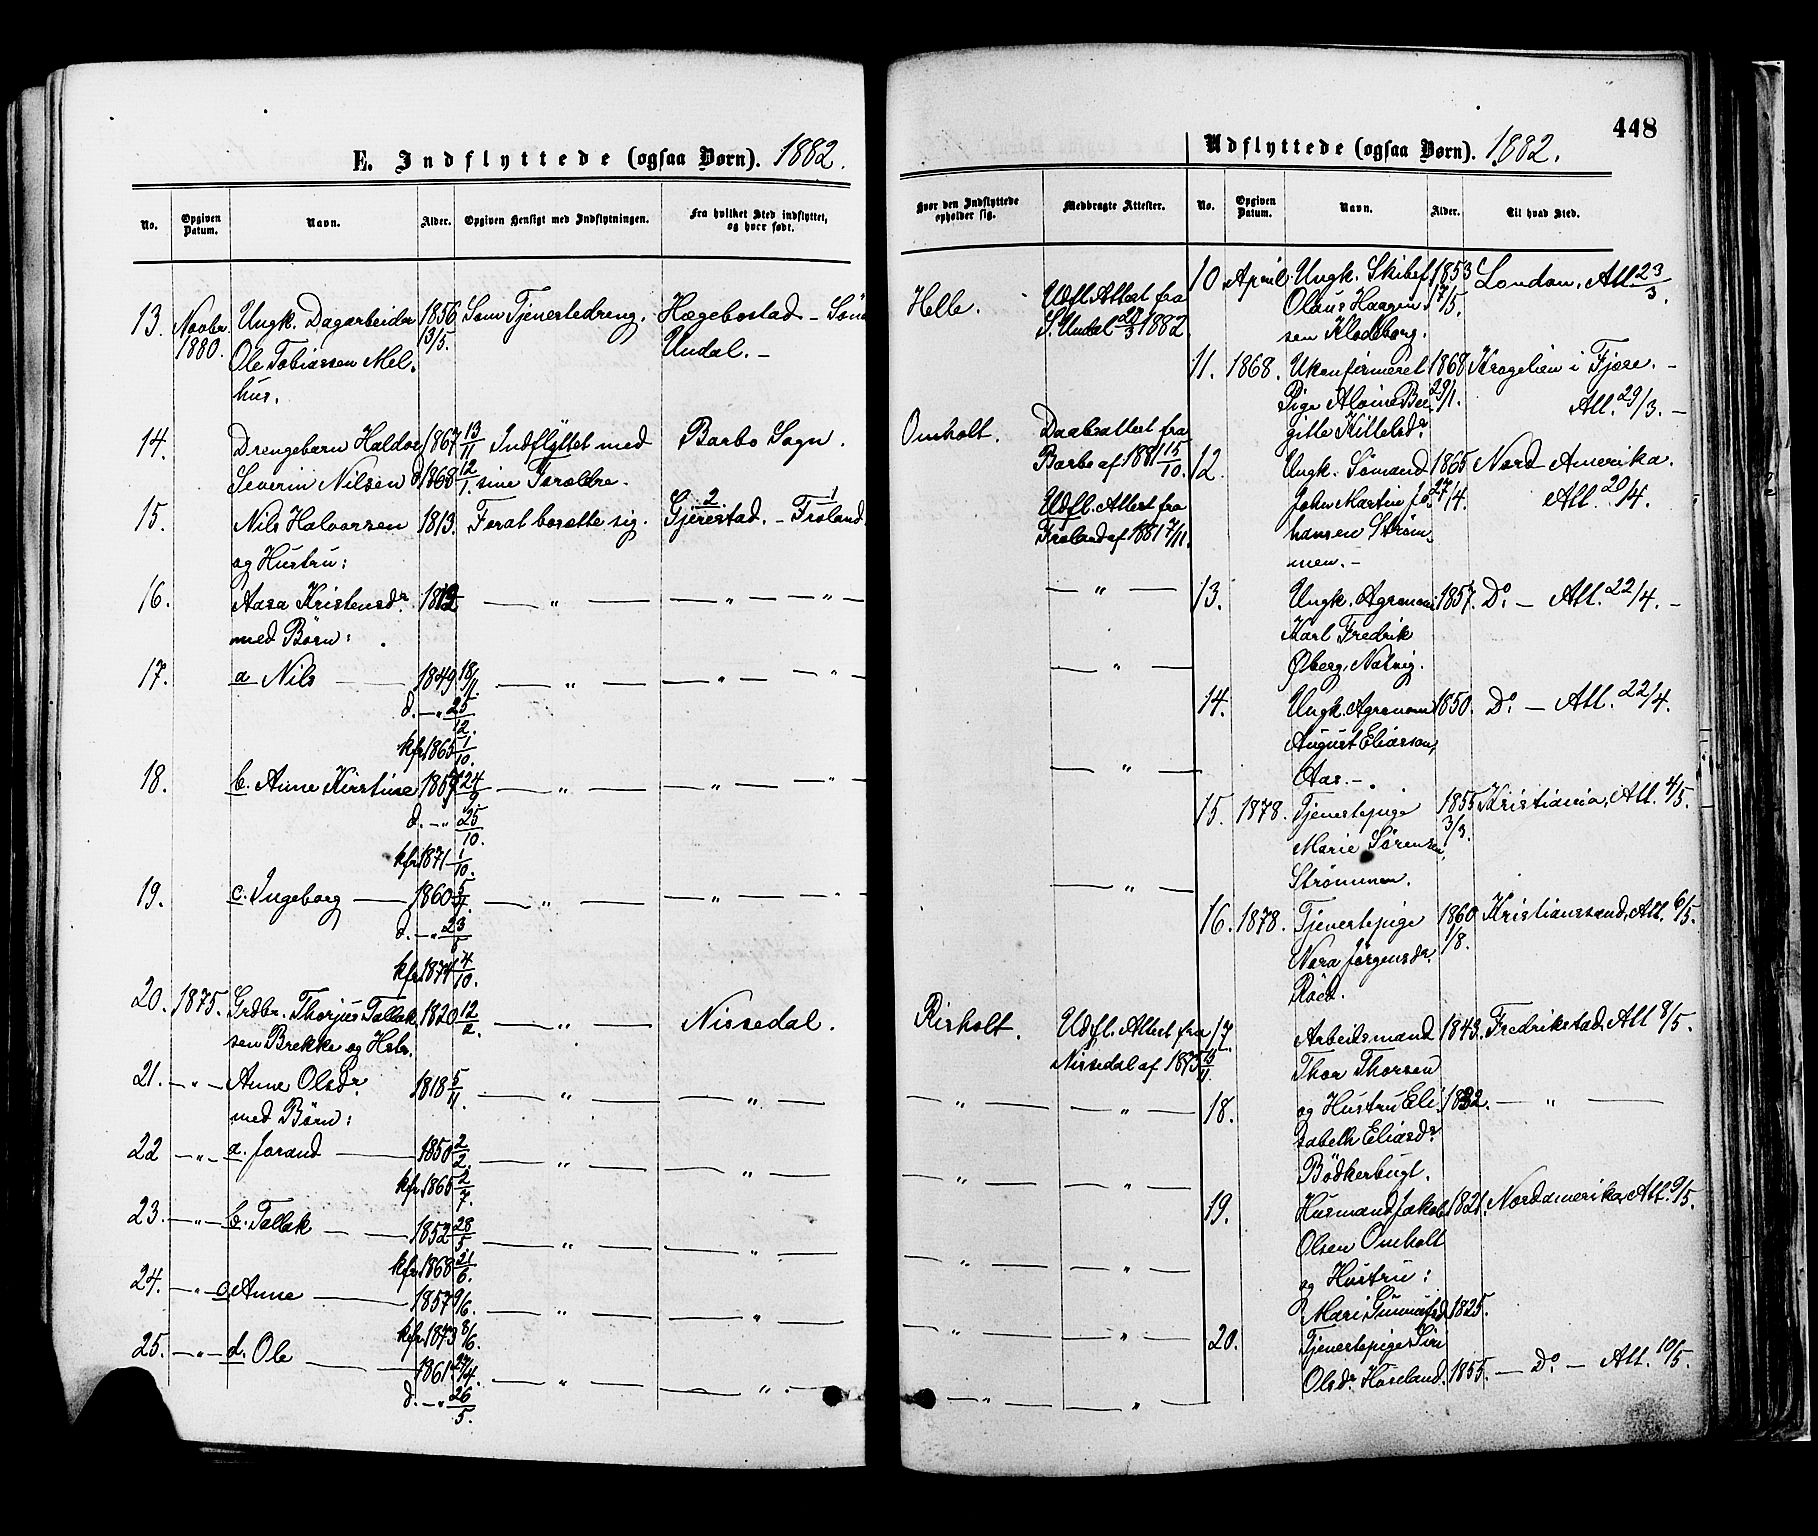 448
E. Indflyttede (ogsaa Børn). 1882.
No.
Opgiven Datum.
Navn.
Alder.
Opgiven Hensigt med Indflytningen.
Fra hvilket Sted indflyttet, og hvor født.
Hvor den Indflyttede opholder sig.
Medbragte Attester.
13. Novbr 1856 Som Tjenestedreng. Hægebostad - Helle. Udfl. Attest fra
1880. Ungk. Dagarbeider 13/5. Undal. - S. Undal 1882
Ole Tobiassen Mel-
hus.
14. Drengebarn 1867 13/11 Indflyttet med Barbo Sogn. Omholt. Daabsattest fra
Severin Nilsen d. 1868 12/1. sine Forældre. Barbo af 1881 15/10.
15. Nils Halvorsen 1813. For at bosætte sig. Gjerestad. - Froland Udfl. Attest fra
og Hustru: Froland af 1881 7/11.
16. Aasa Kristensdr 1812 — " — — " — " — — " —
med Börn:
17. a Nils — 1849 18/11. — " — — " — — " —
d. - " 25/12.
kfr 1865 1/10.
18. b. Anne Kirstine 1857 24/9 — " — — " — — " —
d. - " 25/10.
kfr 1871 1/10.
19. c. Ingeborg — 1860 — " — — " — — " —
d. - " 23
kfr 1874 4/10.
20. 1875. Grdbr. Thorjus Tallak- 1820 12/2 — " — Nissedal. Risholt. Udfl. Attest fra
sen Brekke og Hstr. Nissedal af 1875 13/11.
21. - " - Anne Olsdr 1818 5/11 — " — — " — — " — — " —
med Börn:
22 - " - a. Jorand — 1850 2/2. — " — — " — — " — — " —
kfr 1865 2/7.
23. - " - b. Tallak — 1852 28/5 — " — — " — — " — — " —
kfr 1868 21/6.
24. - " - c. Anne — 1857 9/6. — " — — " — — " — — " —
kfr 1873 8/6.
25. - " - d. Ole — 1861 27/4. — " — — " — — " — — " —
d. - " 26/5.
Udflyttede (ogsaa Børn). 1882.
No.
Opgiven Datum.
Navn.
Alder.
Til hvad Sted.
10. April. Ungk. Skibsf. 1853 London, Att. 23/3.
Olaus Haagen- 17/5.
sen Klodeborg.
11. 1868. Ukonfirmeret 1868 i Fjære. -
Pige 29/1. Att. 29/3. -
gitte Kittelsdr
12. Ungk. Sömand 1865 Nord Amerika.
John Martin Jo- 27/4. Att. 20/4.
hansen Ström-
men. -
13. Ungk. Agronom 1857. Do. - Att. 22/4. -
Karl Fredrik
Øberg, Natvig.
14. Ungk. Agronom 1850. Do - Att. 22/4.
August Eliassen,
Aas. -
15. 1878. Tjenestepige 1855 Kristiania, Att. 4/5.
Marie Sørensen, 3/3.
Strømmen.
16. 1878. Tjenestepige 1860 Kristianssand, Att. 6/5.
Nora Jörgensdr 1/8.
17. Arbeidsmand 1843. Fredrikstad, Att 8/5.
Thor Thorsen
18. og Hustru Eli- 1832. — " —
sabeth Eliasdr
Bödkerbugt.
19. Husmand Jakob 1821. Nordamerika, Att. 9/5.
Olsen Omholt
og Hustru:
Mari Gunnufsd. 1825.
20. Tjenestepige Siri
Olsdr. Høseland. 1855. - Do - Att. 10/5.